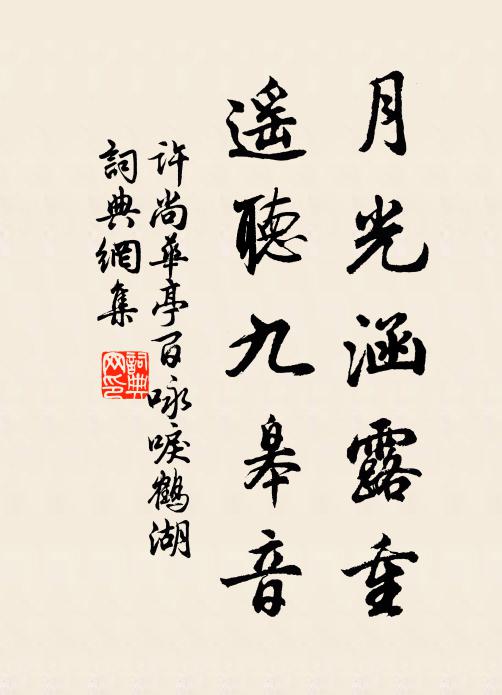 月光涵露重
遥聽九皋音
許尚華亭百咏唳鶴湖
詞典網集
詞典網印